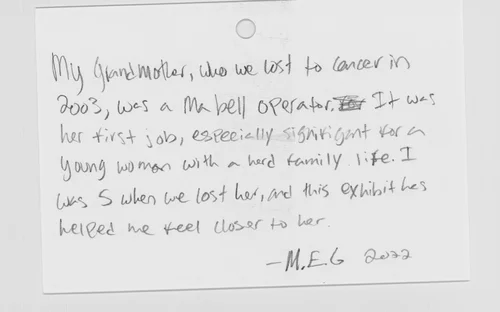 My Grandmother, who we lost to cancer in
2003, was a Ma bell operator. It was
her first job, especially signifigant for a
young woman with a hard family life. I
was 5 when we lost her, and this exhibit has
helped me feel closer to her.
-M.E.G 2022